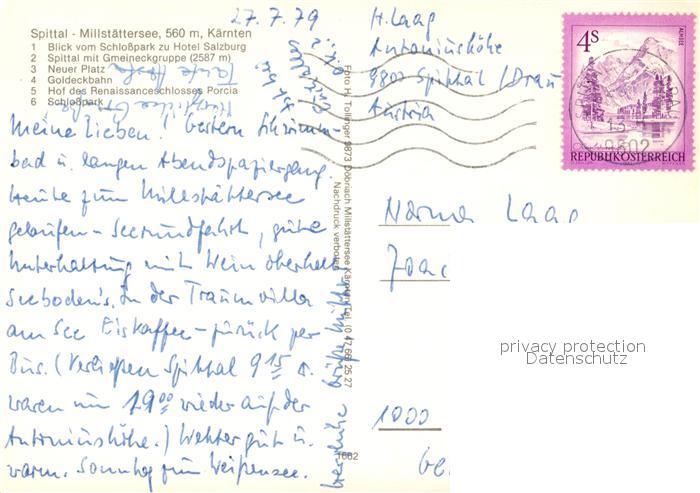 27.7.79
Spittal - Millstättersee, 560 m, Kärnten
1 Blick vom Schloßpark zu Hotel Salzburg
2 Spittal mit Gmeineckgruppe (2587 m)
3 Neuer Platz
4 Goldeckbahn
5 Hof des Renaissanceschlosses Porcia
6 Schloßpark
Meine Lieben! Gestern Schwimm-
bad u. langen Abendspaziergang.
Heute zum Millstättersee
gelaufen - Seerundfahrt, gute
Unterhaltung mit Wein oberhalb
Seeboden's. In der Traumvilla
am See Eiskaffee - zurück per
Bus. (Verließen Spittal 9 15 u.
waren um 19 00 wieder auf der
Antoniushöhe.) Wetter gut u.
warm. Sonntag zum Weißensee.
Foto H. Tollinger 9873 Döbriach Millstättersee Kärnten Tel. (0 42 46) 25 27
Nachdruck verboten
1662
H. Laag
Antoniushöhe
9800 Spittal/Drau
Austria
4 S
ALMSEE
REPUBLIK ÖSTERREICH
9802
Norma Laag
1000
Be
privacy protection
Datenschutz